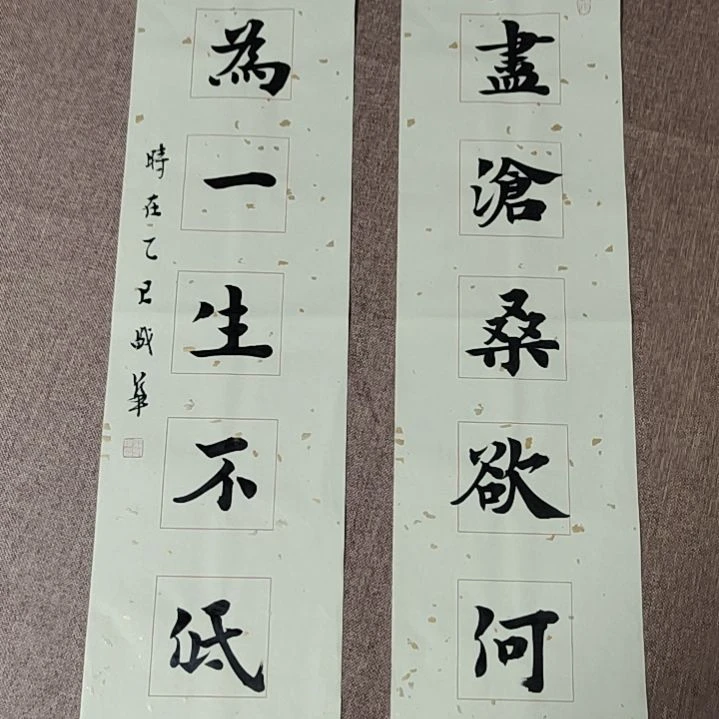 盡滄桑欲何
為一生不低
時在乙巳成華